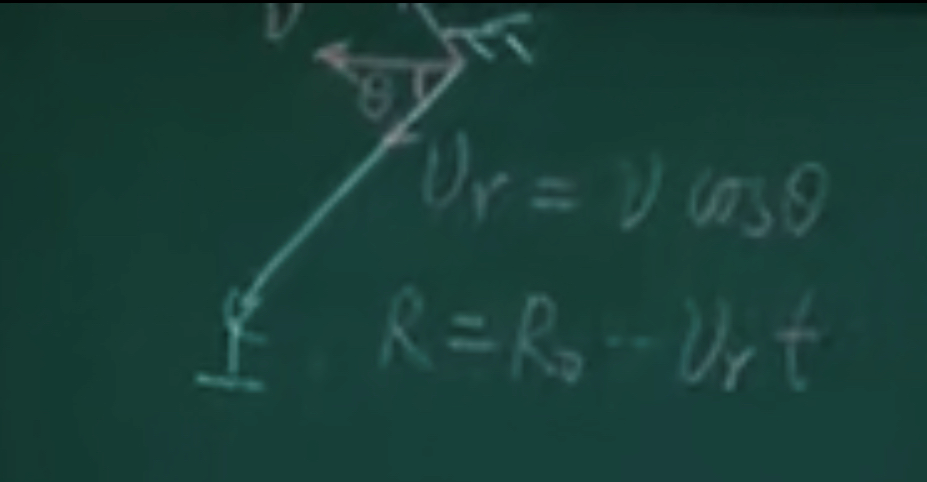 v
θ
v_r = v cosθ
R = R₀ - v_r t